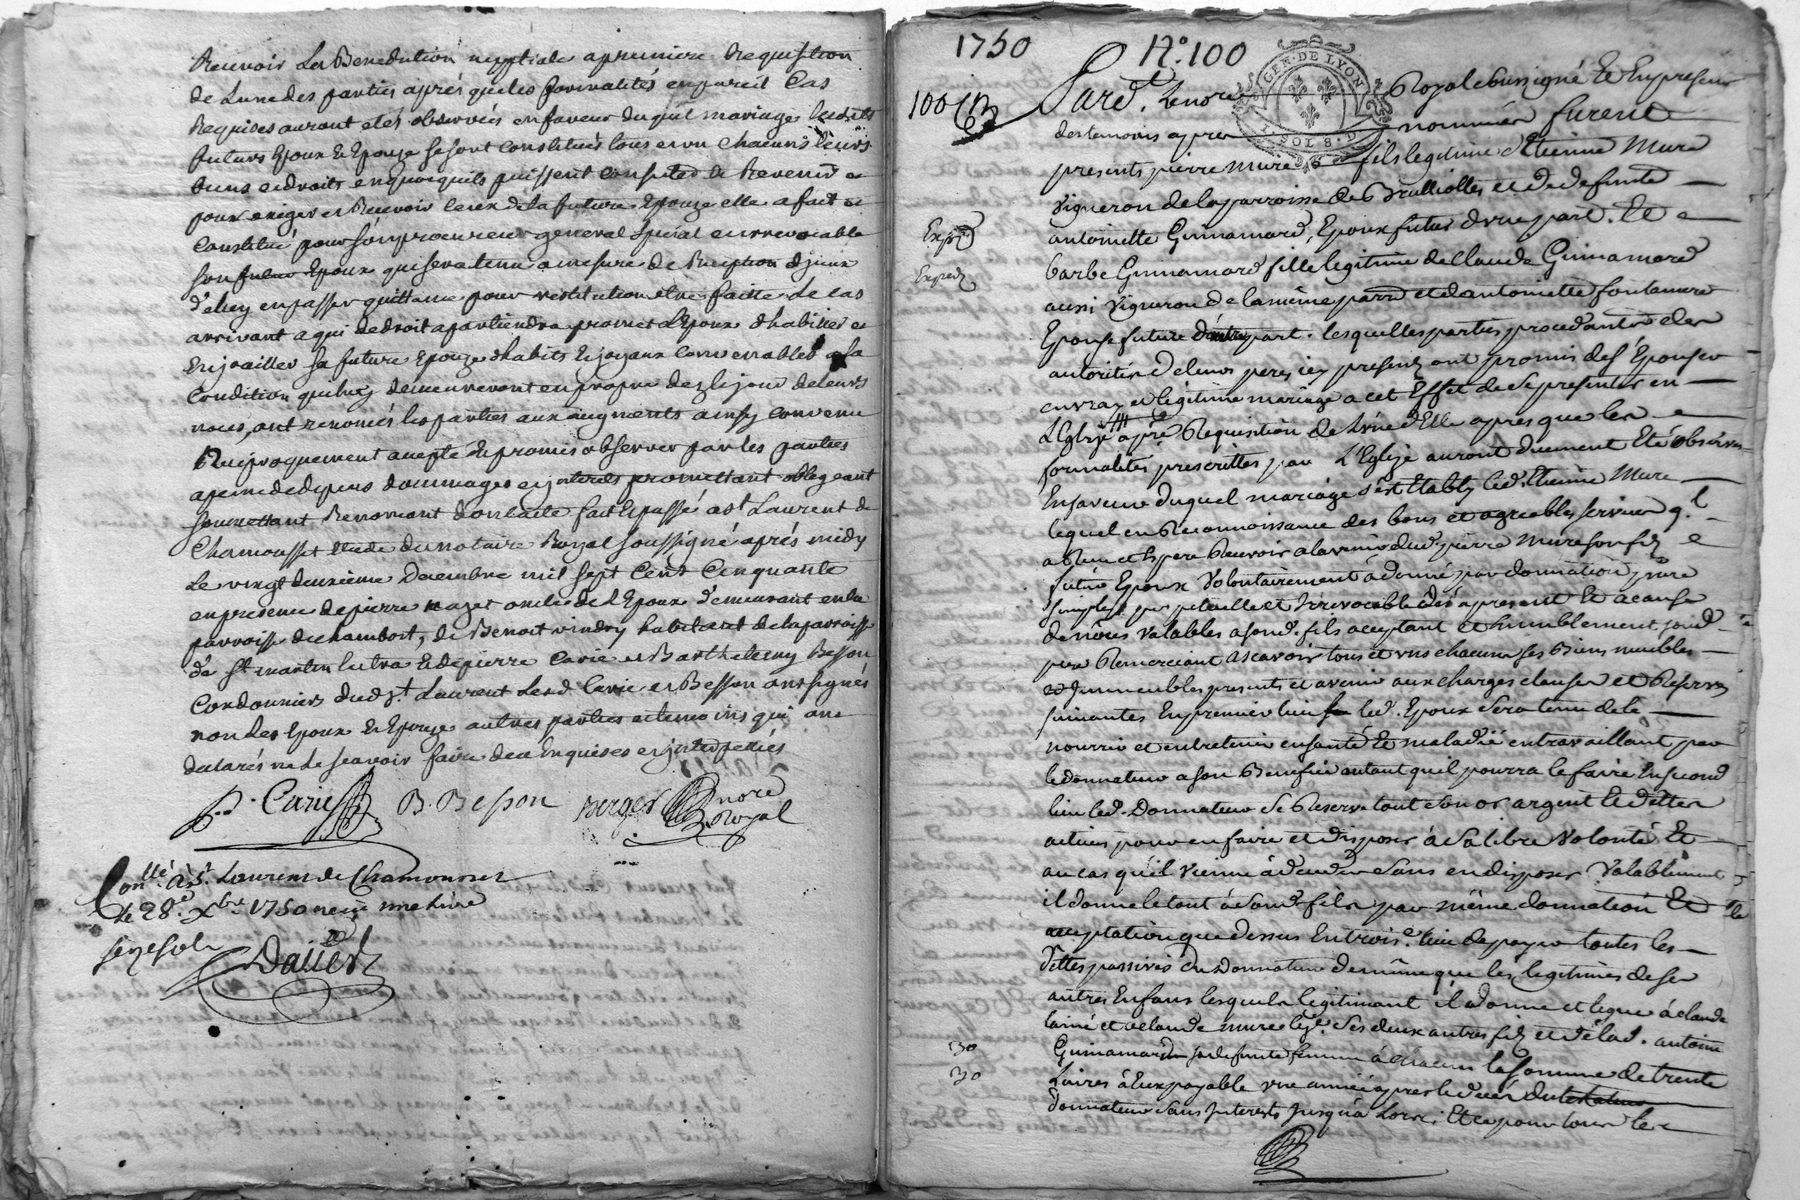 Recevoir La Benediction nuptiale a premiere Requisition
de Lune des parties aprés que les formalités en pareil Cas
Requises auront etéz observées en faveur duquel mariage lesdits
futurs Epoux Et Epouze se sont Constitués tous et un Chacuns leurs
biens et droits en quoy quils puissent Consister Et Revenir et
pour exiger et Recevoir ceux de la future Epouze elle a fait et
Constitué pour son procureur general spécial et irrevocable
son futur Epoux qui sera tenu a mesure de Reception diceux
d'en passer quittance pour restitution etre faitte le cas
arrivant a qui de droit apartiendra promet L'Epoux d'habiller et
Enjoailler sa future Epouze d'habits Et joyaux Convenables a sa
Condition qui luy demeureront en propre dez le jour de leurs
noces, ont renoncés les parties aux augments ainsy convenu
Reciproquement accepté Et promis observer par les parties
a peine de depens dommages et interets promettant obligeant
soumettant Renonçant dont acte fait Et passé a St Laurent de
Chamousset Etude du notaire Royal soussigné aprés midy
Le vingt deuxième Decembre mil sept Cent Cinquante
en presence de pierre mazet oncle de L'Epoux demeurant en la
parroisse de chambost, de Benoit vindry habitant de la parroisse
de St martin Et de pierre Carie et Barthelemy Besson
Cordonniers dud St Laurent Lesd Carie et Besson ont signés
non Les Epoux Et Epouze autres parties et temoins qui ont
declarés ne Le sçavoir faire de ce Enquises et interpellés
P. Carie B. Besson Berger nore
Royal
Conllé a St. Laurens de Chamousset
le 28e Xbre 1750 reçu
seze sols
Dallet
1750 No. 100
GEN. DE LYON
100
Pard. Le nore Royal soussigné Et En presence
des temoins apres nommés furent
presents pierre Mure fils legitime d'Etienne Mure
Vigneron de la parroisse de Brulliolles et de defunte
antoinette Guinamard, Epoux futur d'une part. Et
Expié
barbe Guinamard fille legitime de Claude Guinamard
Expedi
aussi Vigneron de la même parre et d'antoinette fontaniere
Epouse future d'autre part. lesquelles parties procedantes de
autorités de leurs peres icy presens, ont promis de s'Epouser
en vray et legitime mariage a cet Effet de se presenter en
L'Eglise a pre Requisition de L'une d'Elle apres que les
formalités prescrittes par L'Eglize auront duement Eté observées
En faveur duquel mariage s'est Etably led. Etienne Mure
lequel en Reconnoissance des bons et agreables services q.l
a Reçu et Espere Recevoir a l'avenir dud. pierre Mure son fils
futur Epoux Volontairement a donné par donnation pure
simple perpetuelle et Irrevocable dès a present Et a cause
de nôces Valables a sond. fils acceptant et humblement sond
pere Remerciant a scavoir tous et uns chacuns ses Biens meubles
et Immeubles presents et avenir aux charges clauses et Reserves
suivantes En premier lieu led. Epoux sera tenu de le
nourrir et entretenir en santé Et maladie en travaillant par
le donnateur a son Benefice autant quil pourra le faire En second
lieu led. Donnateur se Reserve tout son or argent Et dettes
actives pour en faire et disposer à sa libre Volonté Et
au cas qu'il vienne à deceder sans en disposer Valablement
il donne le tout à sond. fils par même donnation Et
acceptation que dessus En trois.e lieu de payer toutes les
Dettes passives du Donnateur de même que les legitimes de ses
autres Enfans lesquels legitimant il a donné et legue à claude
lainé et a claude mure le je. ses deux autres fils et de lad. antoinette
30 Guinamard sa defunte femme à chacun le somme de trente
30 Livres à Eux payable une année apres le decés du
donnateur sans Interests jusqu'a Lors; Et ce pour tous les